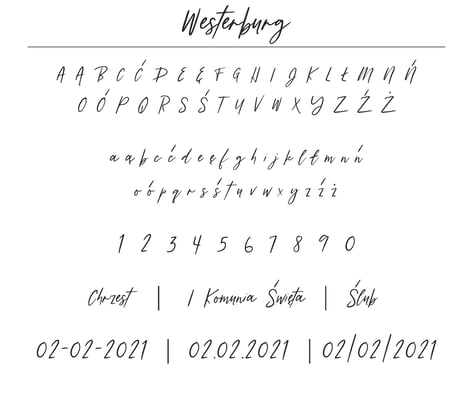 Westerburg
A A B C Ć D E Ę F G H I J K L Ł M N Ń
O Ó P Q R S Ś T U V W X Y Z Ź Ż
a a b c ć d e ę f g h i j k l ł m n ń
o ó p q r s ś t u v w x y z ź ż
1 2 3 4 5 6 7 8 9 0
Chrzest | I Komunia Święta | Ślub
02-02-2021 | 02.02.2021 | 02/02/2021